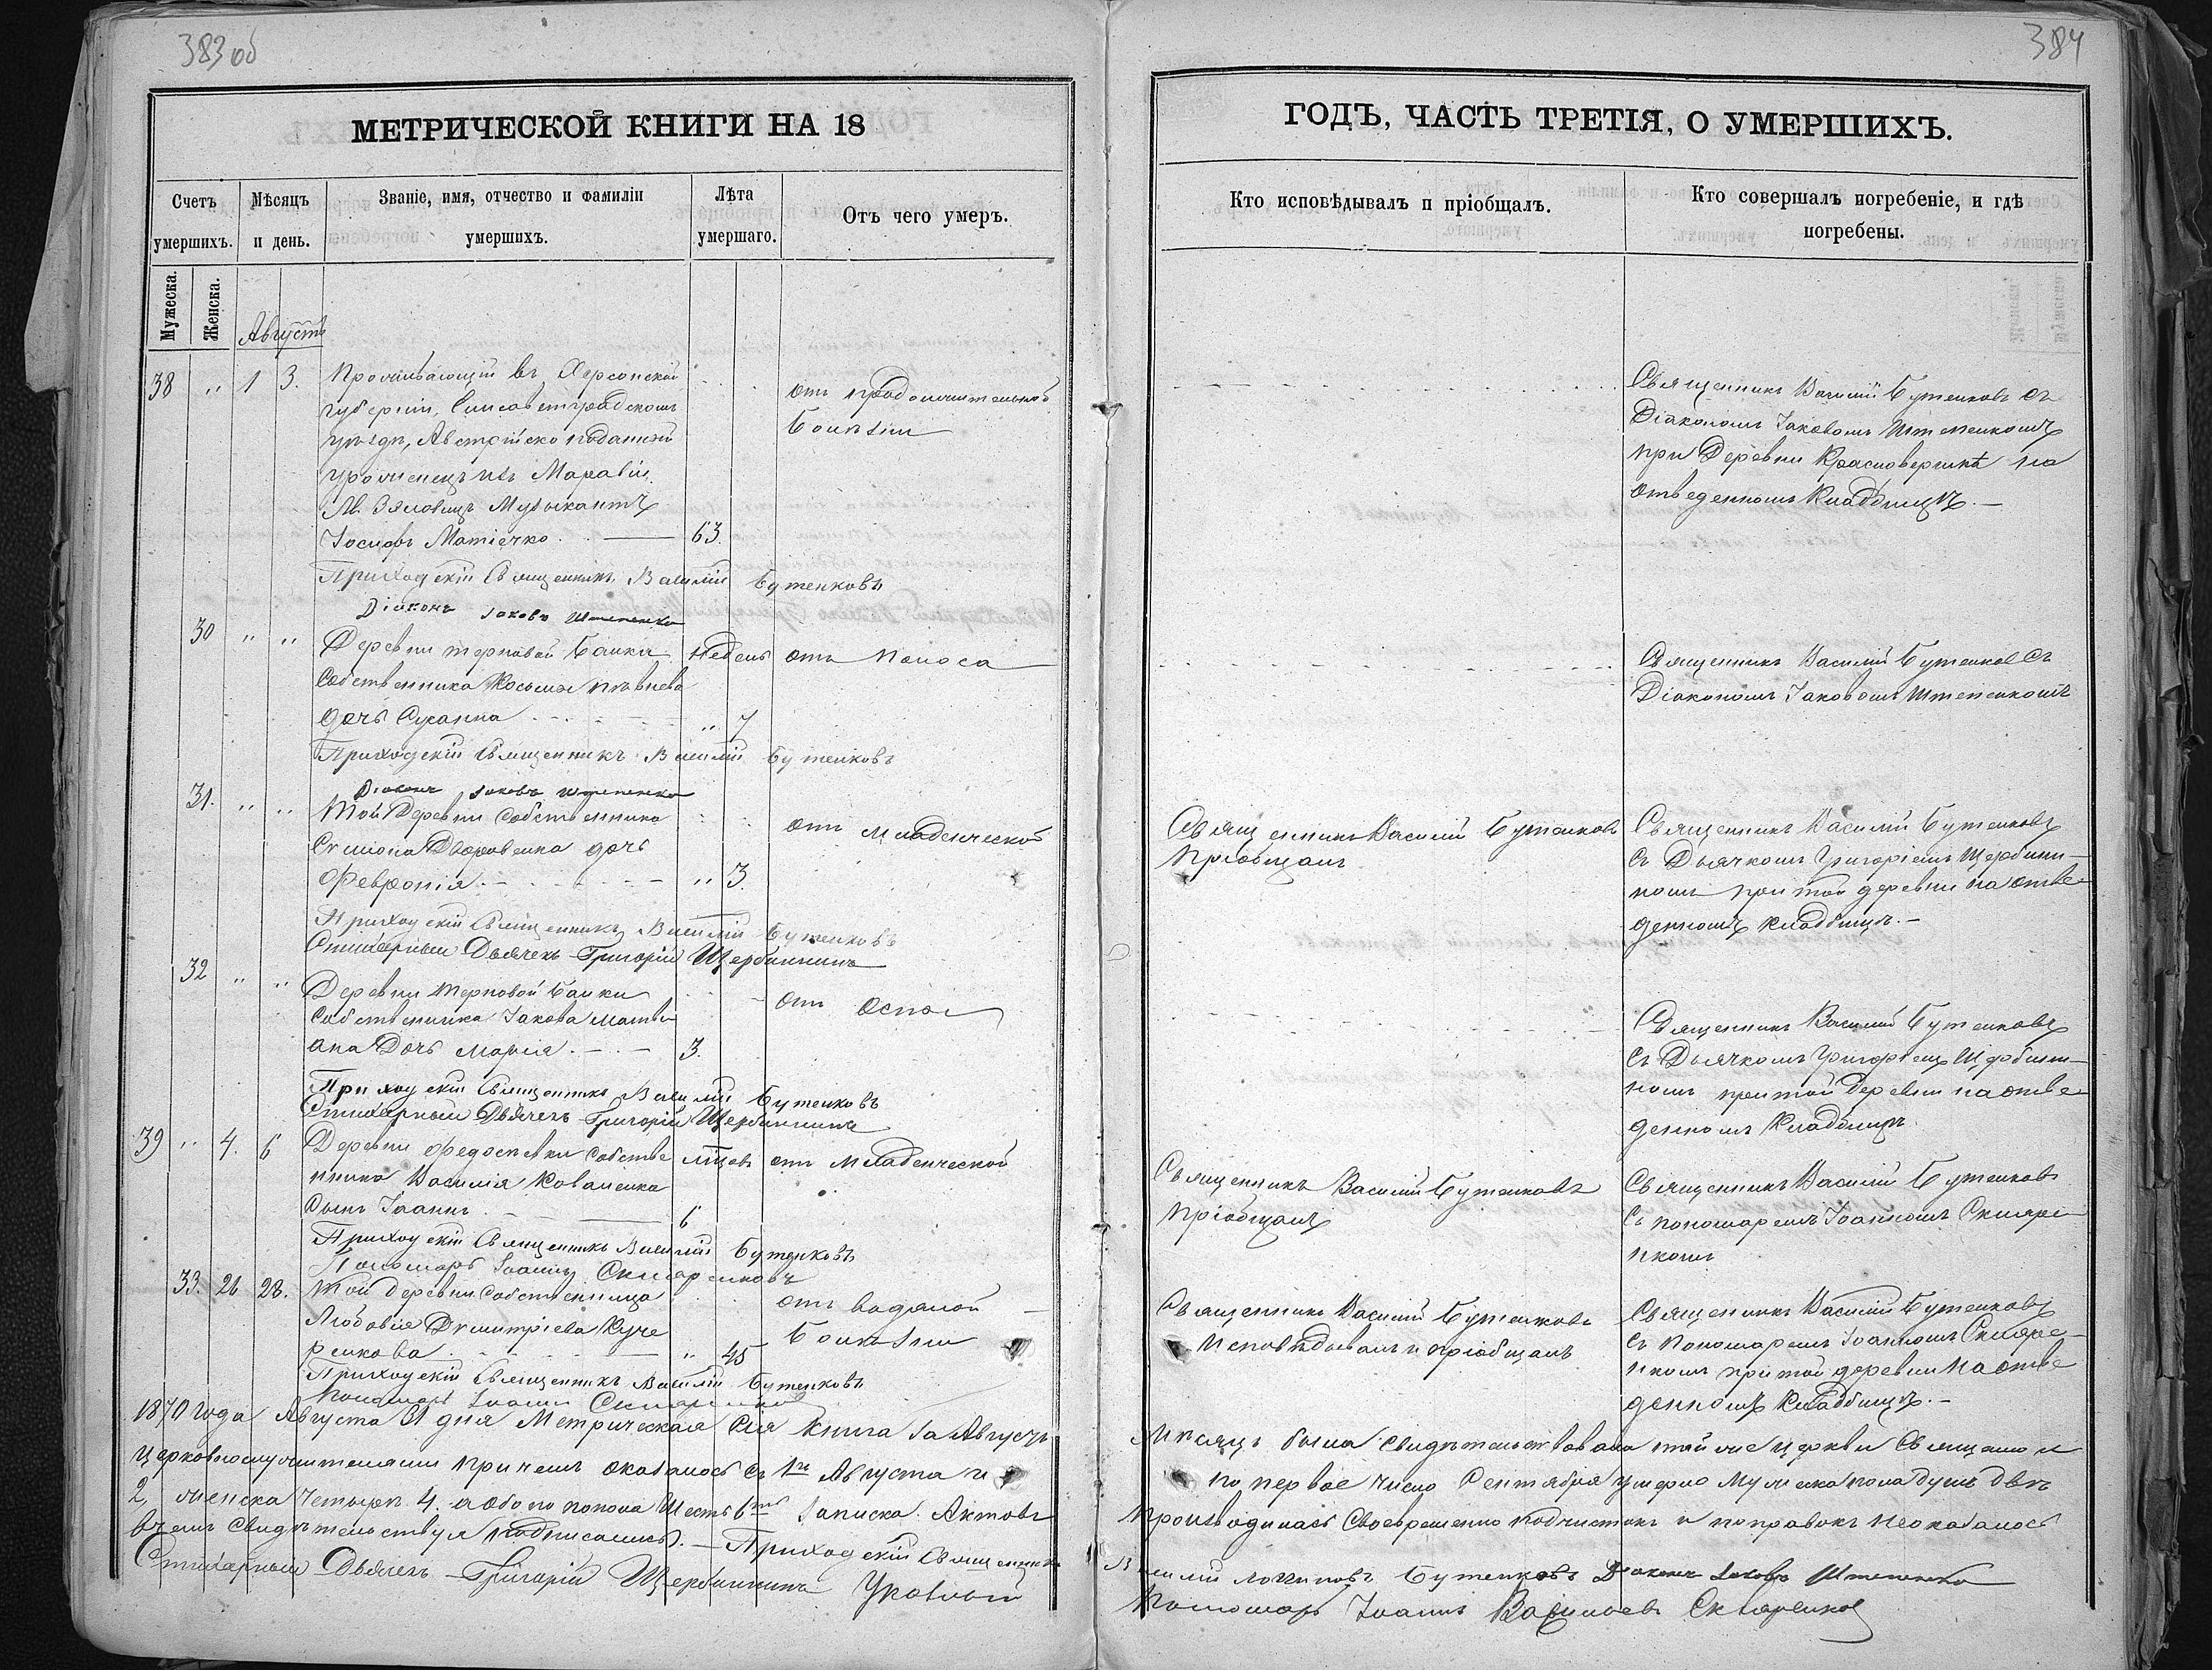 383 об
МЕТРИЧЕСКОЙ КНИГИ НА 18
Счетъ умершихъ.
Мѣсяцъ и день.
Званіе, имя, отчество и фамиліи умершихъ.
Лѣта умершаго.
Отъ чего умеръ.
Мужеска.
Женска.
Августъ
38 " 1 3.
Проживающій въ Херсонской
губерніи, Елисаветградскомъ
уѣздѣ, Австрійско подданной
уроженецъ изъ Маравіи,
Музыкантъ
Іосифъ Матіечко 63.
отъ продолжительной
болѣзни
Приходскій Священникъ Василій Бутенковъ
Діаконъ Іаковъ Штепенко
30 " "
Деревни терновой балки недель отъ поноса
Собственника Косьмы
дочь Сусанна " 7
Приходскій Священникъ Василій Бутенковъ
Діаконъ Іаковъ Штепенко
31. " "
Той Деревни Собственника
Симиона дочь
Февронія " 3.
отъ младенческой
Приходскій Священникъ Василій Бутенковъ
Стихарный Дьячекъ Григорій Щербининъ
32 " "
Деревни Терновой балки
Собственника Іакова
Дочь Марія 3.
отъ оспы
Приходскій Священникъ Василій Бутенковъ
Стихарный Дьячекъ Григорій Щербининъ
39 " 4. 6
Деревни Федосѣевки Собстве мцевъ отъ младенческой
нника Василія Коваленка
Сынъ Іоаннъ 6
Приходскій Священникъ Василій Бутенковъ
Пономарь Іоаннъ Скляренковъ
33. 26 28.
Той деревни Собственница
Любовія Димитріева Куче
ренкова " 45
отъ водяной
болѣзни
Приходскій Священникъ Василій Бутенковъ
Пономарь Іоаннъ Скляренковъ
1870 года Августа 31 дня Метрическая сія книга за Августъ
Церковнослужителями причемъ оказалось съ 1го Августа и
2, женска четыре 4. а обо по попола шесть 6ть Записка Актовъ
вчемъ свидѣтельствуя подписались. — Приходскій Священникъ
Стихарный Дьячекъ Григорій Щербининъ
384
ГОДЪ, ЧАСТЬ ТРЕТІЯ, О УМЕРШИХЪ.
Кто исповѣдывалъ и пріобщалъ.
Кто совершалъ погребеніе, и гдѣ погребены.
Священникъ Василій Бутенковъ съ
Діакономъ Іаковомъ Штепенкомъ
при Деревни Красновершкѣ на
отведенномъ Кладбищѣ. —
Священникъ Василій Бутенковъ съ
Діакономъ Іаковомъ Штепенкомъ
Священникъ Василій Бутенковъ
пріобщалъ
Священникъ Василій Бутенковъ
съ Дьячкомъ Григоріемъ Щербини-
номъ при той деревни на отве-
денномъ кладбищѣ. —
Священникъ Василій Бутенковъ
съ Дьячкомъ Григоріемъ Щербини-
номъ при той Деревни на отве
денномъ Кладбищѣ
Священникъ Василій Бутенковъ
пріобщалъ
Священникъ Василій Бутенковъ
съ пономаремъ Іоанномъ Скляре
нкомъ
Священникъ Василій Бутенковъ
Исповѣдывалъ и пріобщалъ
Священникъ Василій Бутенковъ
съ Пономаремъ Іоанномъ Скляре-
нкомъ при той деревни на отве
денномъ Кладбищѣ. —
Мѣсяцъ была свидѣтельствована той же церкви Священно и
по первое число Сентября умерло мужеска пола душъ двѣ
производилась своевременно подчистокъ и поправокъ неоказалось
Василій Логиновъ Бутенковъ Діаконъ Іаковъ Штепенко
Пономарь Іоаннъ Васильевъ Скляренковъ